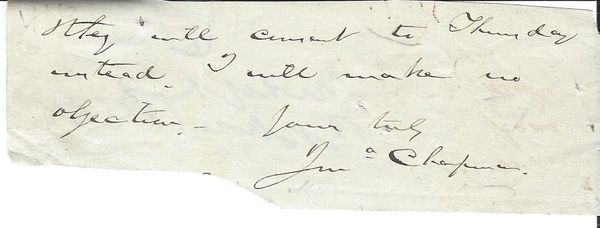 they will consent to Thursday
instead I will make no
objection. – Yours truly
Jnº Chapman.